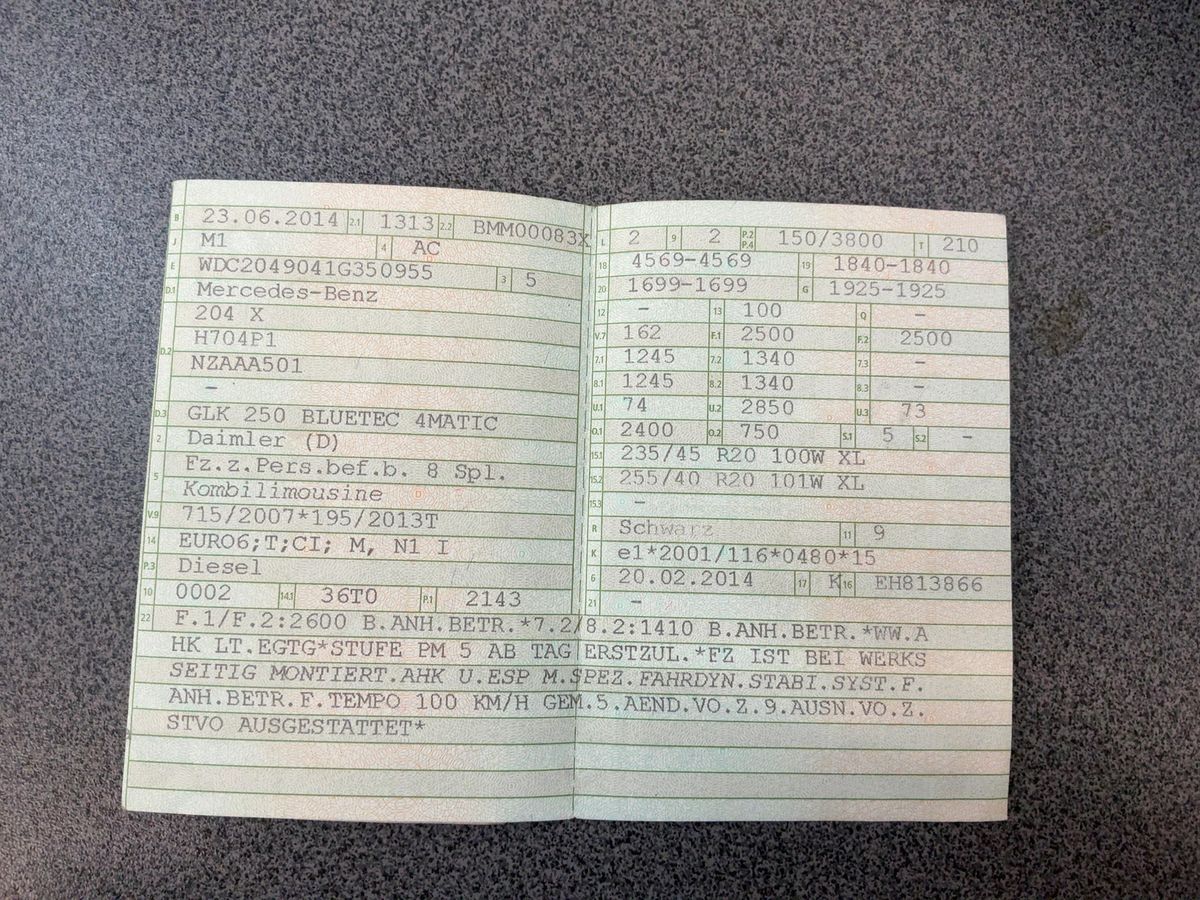 B 23.06.2014 2.1 1313 2.2 BMM00083X
J M1 4 AC
E WDC2049041G350955 3 5
D.1 Mercedes-Benz
204 X
D.2 H704P1
NZAAA501
-
D.3 GLK 250 BLUETEC 4MATIC
2 Daimler (D)
5 Fz.z.Pers.bef.b. 8 Spl.
Kombilimousine
V.9 715/2007*195/2013T
14 EURO6;T;CI; M, N1 I
P.3 Diesel
10 0002 14.1 36T0 P.1 2143
L 2 9 2 P.2 P.4 150/3800 T 210
18 4569-4569 19 1840-1840
20 1699-1699 G 1925-1925
12 - 13 100 Q -
V.7 162 F.1 2500 F.2 2500
7.1 1245 7.2 1340 7.3 -
8.1 1245 8.2 1340 8.3 -
U.1 74 U.2 2850 U.3 73
O.1 2400 O.2 750 S.1 5 S.2 -
15.1 235/45 R20 100W XL
15.2 255/40 R20 101W XL
15.3 -
R Schwarz 11 9
K e1*2001/116*0480*15
6 20.02.2014 17 K 16 EH813866
21 -
22 F.1/F.2:2600 B.ANH.BETR.*7.2/8.2:1410 B.ANH.BETR.*WW.A
HK LT.EGTG*STUFE PM 5 AB TAG ERSTZUL.*FZ IST BEI WERKS
SEITIG MONTIERT.AHK U.ESP M.SPEZ.FAHRDYN.STABI.SYST.F.
ANH.BETR.F.TEMPO 100 KM/H GEM.5.AEND.VO.Z.9.AUSN.VO.Z.
STVO AUSGESTATTET*